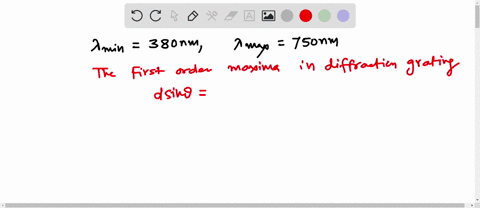 λmin = 380nm, λmax = 750nm
The First order maxima in diffraction grating
dsinθ =